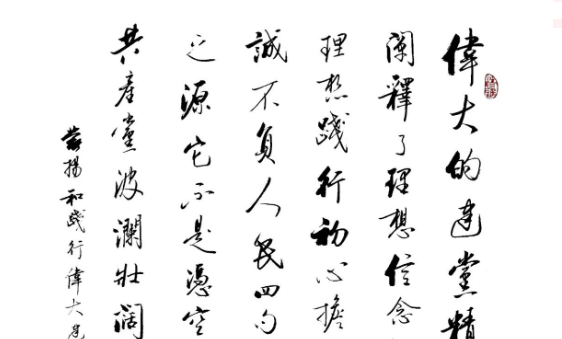 偉大的建黨精
闡釋了理想信念
理想踐行初心擔
誠不負人民四句
之源它不是憑空
共產黨波瀾壯闊
揚和踐行偉大